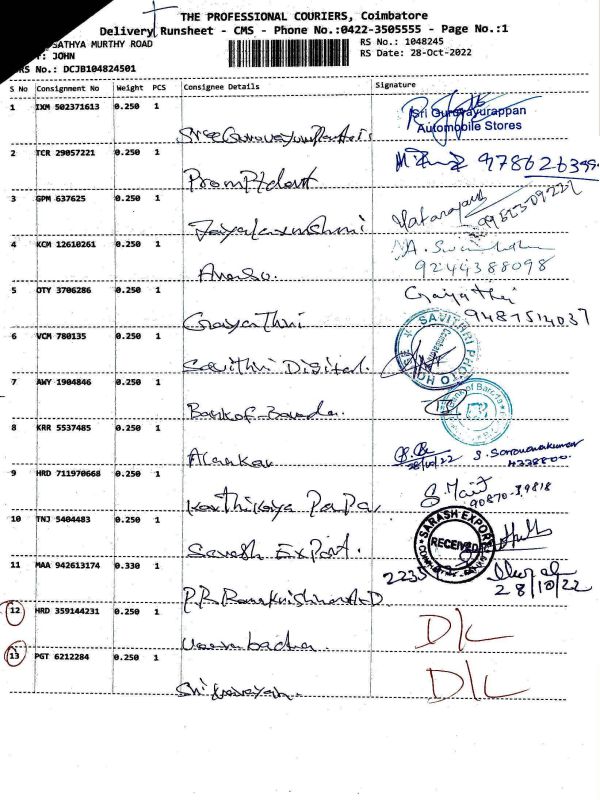 THE PROFESSIONAL COURIERS, Coimbatore
Delivery Runsheet - CMS - Phone No.:0422-3505555 - Page No.:1
SATHYA MURTHY ROAD RS No.: 1048245
: JOHN RS Date: 28-Oct-2022
RS No.: DCJB104824501
S No Consignment No Weight PCS Consignee Details Signature
1 IXM 502371613 0.250 1
Sri Gururayurappan
Automobile Stores
2 TCR 29057221 0.250 1
Prompt dent
3 GPM 637625 0.250 1
Jayalaxushmi
4 KCM 12610261 0.250 1
9244388098
5 OTY 3706286 0.250 1 Gayathri
Gayathri 9487514037
6 VCM 780135 0.250 1 SAVITHRI PHOTO HOUSE
Savithri Digital.
7 AWY 1904846 0.250 1 Bank of Baroda
Bank of Baroda.
8 KRR 5537485 0.250 1 S. Saravanakumar
28/10/22 4338800
Alankar
9 HRD 711970668 0.250 1
90870-39818
Karthikaya Papa
10 TNJ 5404483 0.250 1 SARASH EXPORT
RECEIVED
Sarash Export.
11 MAA 942613174 0.330 1 2235
28/10/22
P.R. Ramakrishnan
12 HRD 359144231 0.250 1 D/L
13 PGT 6212284 0.250 1 D/L